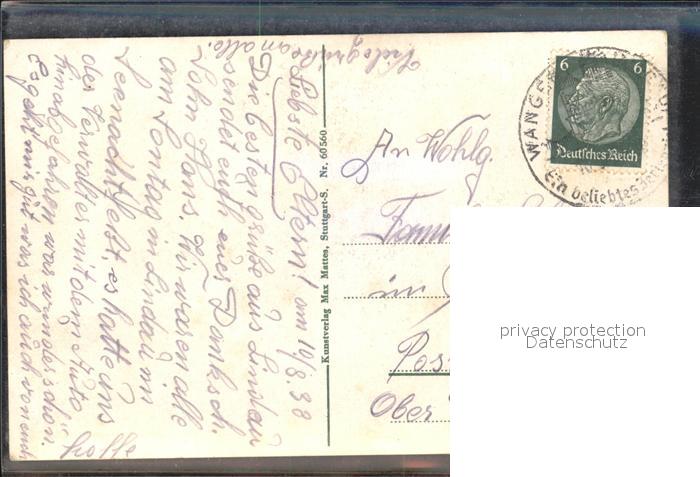 Liebste Eltern! am 19/8.38
Die besten Grüße aus Lindau
sendet euch euer Danksch.
Sohn Hans. Wir waren alle
am Sontag in Lindau im
Seenachtfest, es hatte uns
der Verwalter mit dem Auto
hinab gefahren war wunderschön.
Es geht mir gut was ich auch von euch
hoffe
Viele grüße
an alle.
Kunstverlag Max Mattes, Stuttgart-S. Nr. 60560
An Wohlg.
Fami
im
Pos
Ober
6 6
Deutsches Reich
WANG
Ein beliebtes
privacy protection
Datenschutz